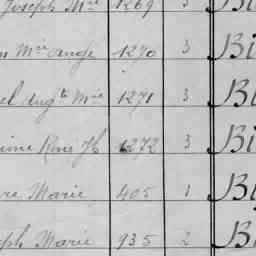 Joseph Mie 1269 3 Bi
n Mie Ange 1270 3 Bi
el Augte Mie 1271 3 Bi
Rose 1272 3 Bi
re Marie 405 1 Bi
eph Marie 935 2 Bi